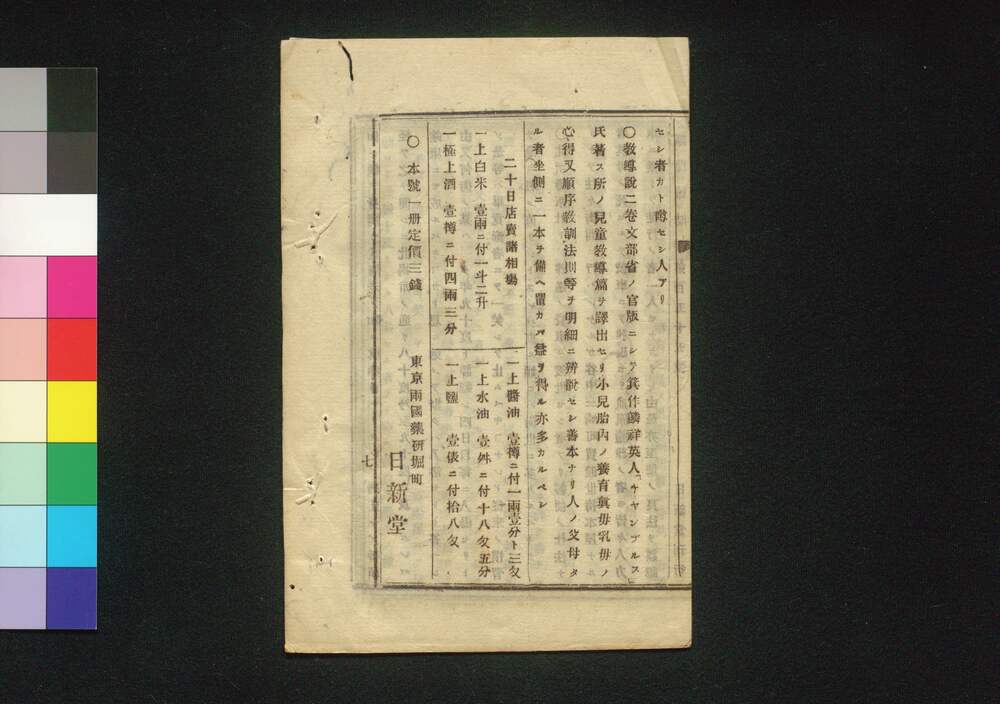 セシ者カト噂セシ人アリ
〇教導説二卷文部省ノ官版ニシテ箕作麟祥英人「チヤンブルス」
氏著ス所ノ兒童教導篇ヲ譯出セリ小兒胎内ノ養育眞毋乳毋ノ
心得又順序敎訓法則等ヲ明細ニ辨說セシ善本ナリ人ノ父母タ
ル者坐側ニ一本ヲ備ヘ置カバ益ヲ得ル亦多カルベシ
二十日店賣諸相場
一上白米 壹兩ニ付一斗二升
一極上酒 壹樽ニ付四兩三分
一上醬油 壹樽ニ付一兩壹分ト三匁
一上水油 壹舛ニ付十八匁五分
一上鹽 壹俵ニ付拾八匁
〇本號一册定價三錢
東京兩國藥硏堀町
日新堂
七